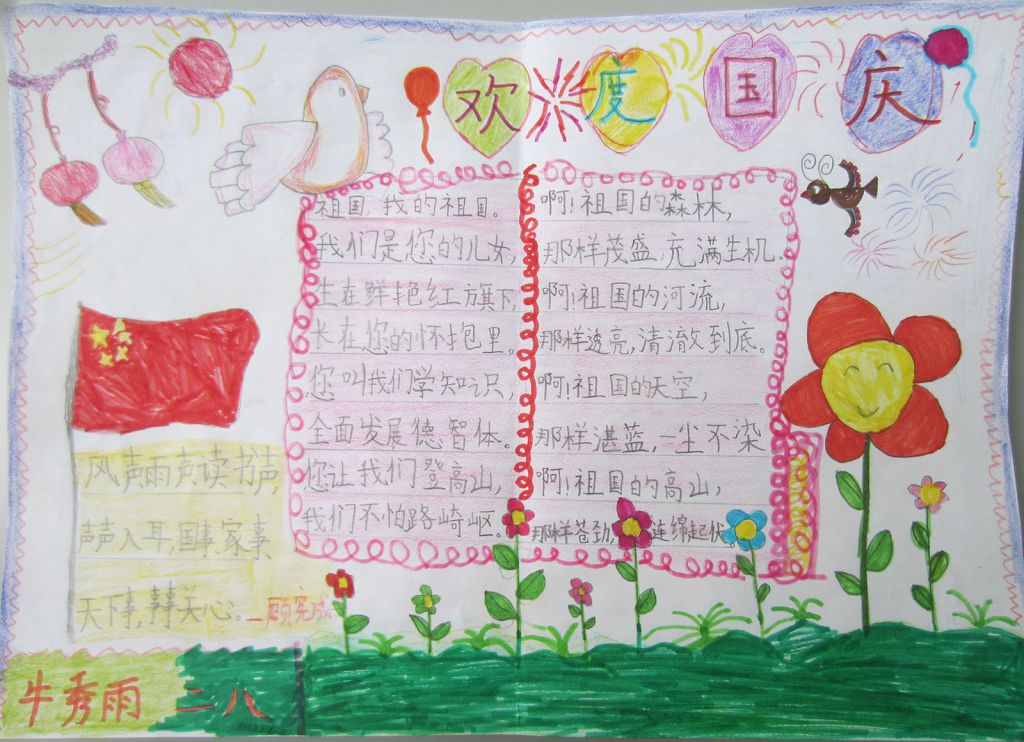 欢度国庆
祖国,我的祖国。
我们是您的儿女,
生在鲜艳红旗下,
长在您的怀抱里。
您叫我们学知识,
全面发展德智体。
您让我们登高山,
我们不怕路崎岖。
啊!祖国的森林,
那样茂盛,充满生机。
啊!祖国的河流,
那样透亮,清澈到底。
啊!祖国的天空,
那样湛蓝,一尘不染
啊!祖国的高山,
那样苍劲,连绵起伏。
风声雨声读书声,
声声入耳,国事家事
天下事,事事关心。—顾宪成
牛秀雨 二八